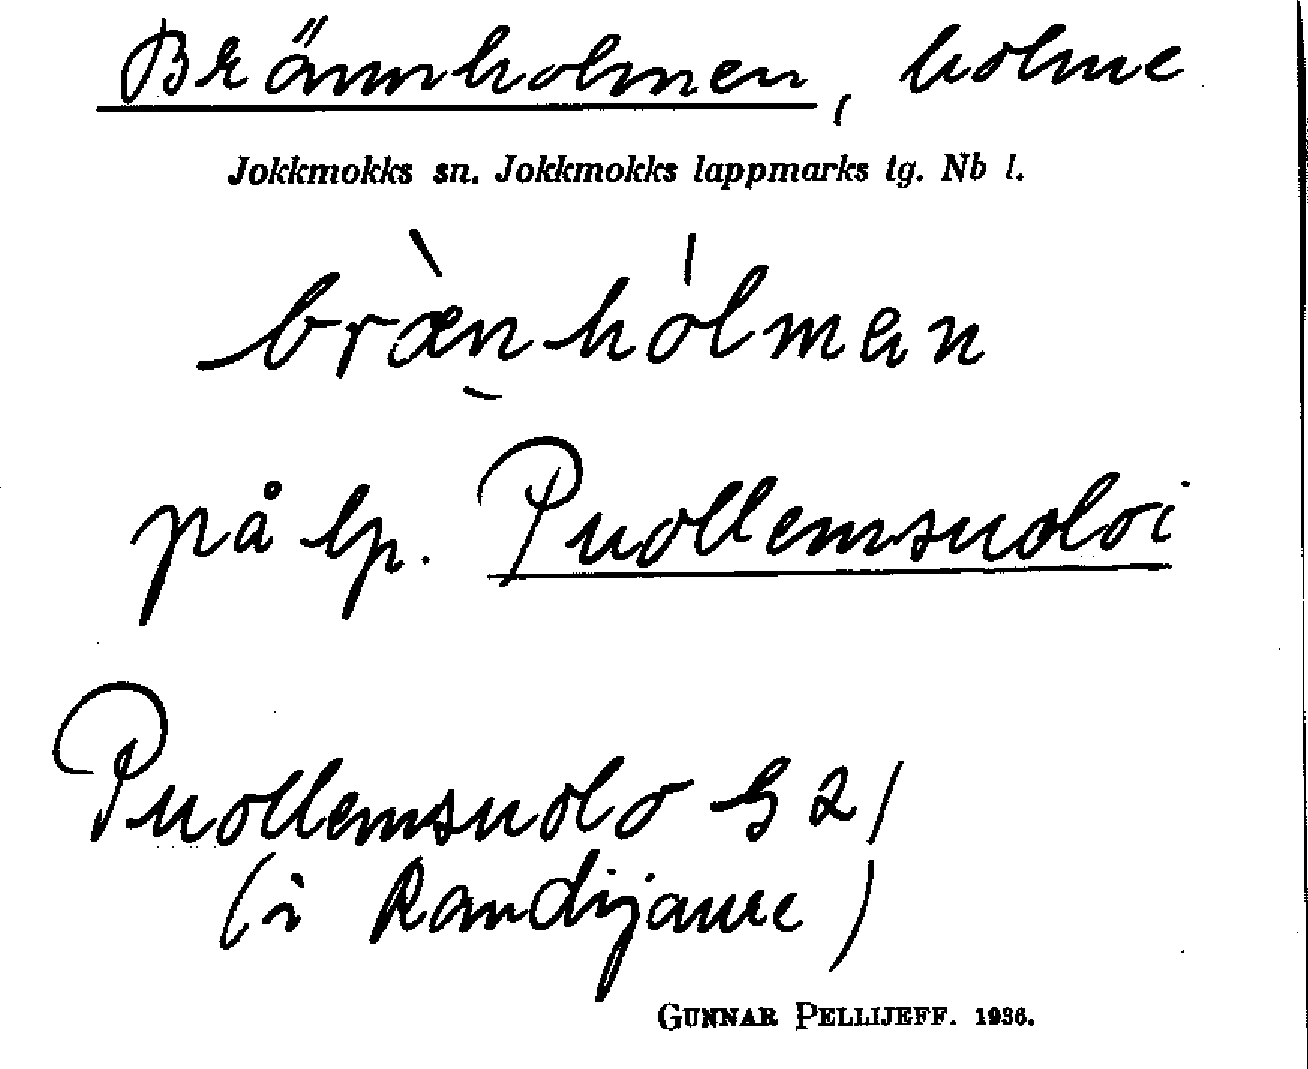 Brännholmen, holme
Jokkmokks sn. Jokkmokks lappmarks tg. Nb l.
bræ̀n̠hól̍man
på lp. Puollemsuoloi
Puollemsuolo G 21
(i Randijaure)
GUNNAR PELLIJEFF. 1936.